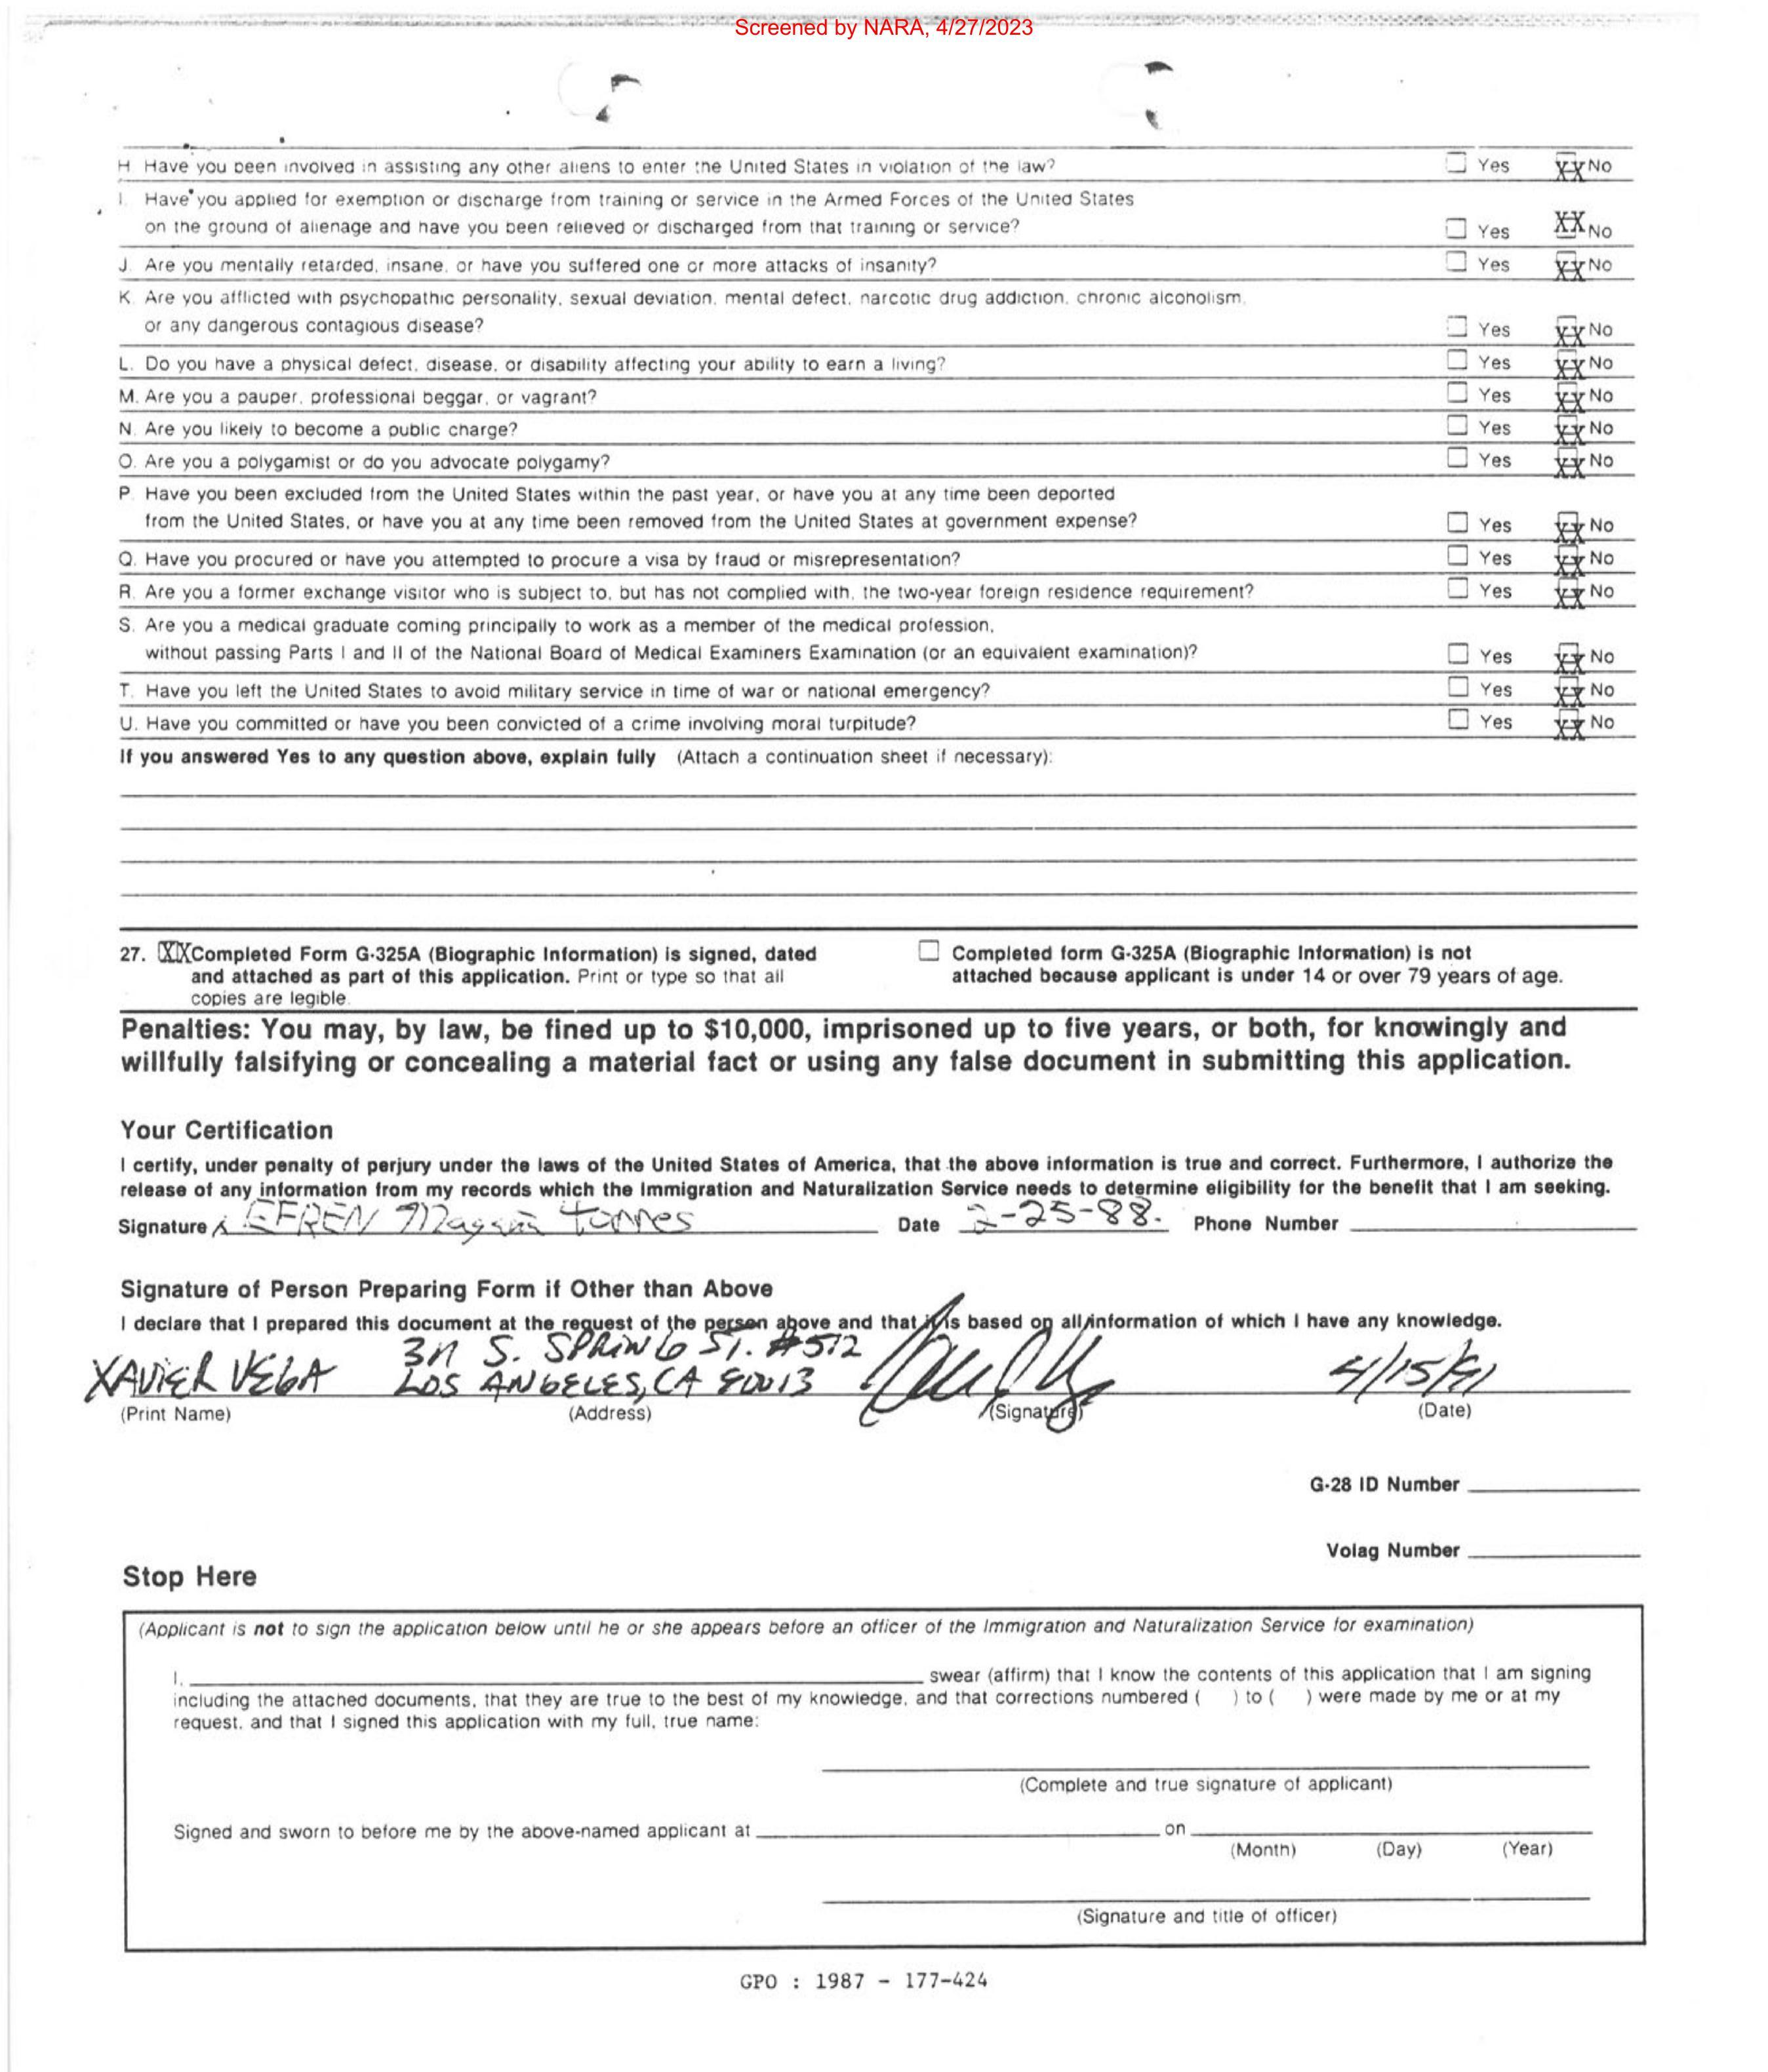 Screened by NARA, 4/27/2023
H. Have you been involved in assisting any other aliens to enter the United States in violation of the law? Yes XX No
I. Have you applied for exemption or discharge from training or service in the Armed Forces of the United States
on the ground of alienage and have you been relieved or discharged from that training or service? Yes XX No
J. Are you mentally retarded, insane, or have you suffered one or more attacks of insanity? Yes XX No
K. Are you afflicted with psychopathic personality, sexual deviation, mental defect, narcotic drug addiction, chronic alcoholism,
or any dangerous contagious disease? Yes XX No
L. Do you have a physical defect, disease, or disability affecting your ability to earn a living? Yes XX No
M. Are you a pauper, professional beggar, or vagrant? Yes XX No
N. Are you likely to become a public charge? Yes XX No
O. Are you a polygamist or do you advocate polygamy? Yes XX No
P. Have you been excluded from the United States within the past year, or have you at any time been deported
from the United States, or have you at any time been removed from the United States at government expense? Yes XX No
Q. Have you procured or have you attempted to procure a visa by fraud or misrepresentation? Yes XX No
R. Are you a former exchange visitor who is subject to, but has not complied with, the two-year foreign residence requirement? Yes XX No
S. Are you a medical graduate coming principally to work as a member of the medical profession,
without passing Parts I and II of the National Board of Medical Examiners Examination (or an equivalent examination)? Yes XX No
T. Have you left the United States to avoid military service in time of war or national emergency? Yes XX No
U. Have you committed or have you been convicted of a crime involving moral turpitude? Yes XX No
If you answered Yes to any question above, explain fully (Attach a continuation sheet if necessary):
27. XX Completed Form G-325A (Biographic Information) is signed, dated
and attached as part of this application. Print or type so that all
copies are legible.
Completed form G-325A (Biographic Information) is not
attached because applicant is under 14 or over 79 years of age.
Penalties: You may, by law, be fined up to $10,000, imprisoned up to five years, or both, for knowingly and
willfully falsifying or concealing a material fact or using any false document in submitting this application.
Your Certification
I certify, under penalty of perjury under the laws of the United States of America, that the above information is true and correct. Furthermore, I authorize the
release of any information from my records which the Immigration and Naturalization Service needs to determine eligibility for the benefit that I am seeking.
Signature x EFREN Magaña Torres Date 2-25-88. Phone Number
Signature of Person Preparing Form if Other than Above
I declare that I prepared this document at the request of the person above and that it is based on all information of which I have any knowledge.
311 S. SPRING ST. #512
XAVIER VEGA LOS ANGELES, CA 90013 4/15/91
(Print Name) (Address) (Signature) (Date)
G-28 ID Number
Volag Number
Stop Here
(Applicant is not to sign the application below until he or she appears before an officer of the Immigration and Naturalization Service for examination)
I, swear (affirm) that I know the contents of this application that I am signing
including the attached documents, that they are true to the best of my knowledge, and that corrections numbered ( ) to ( ) were made by me or at my
request, and that I signed this application with my full, true name:
(Complete and true signature of applicant)
Signed and sworn to before me by the above-named applicant at on
(Month) (Day) (Year)
(Signature and title of officer)
GPO : 1987 - 177-424